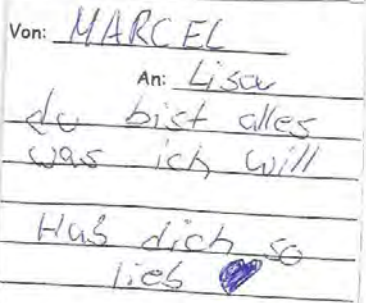 Von: MARCEL
An: Lisa
du bist alles
was ich will
Hab dich so
lieb